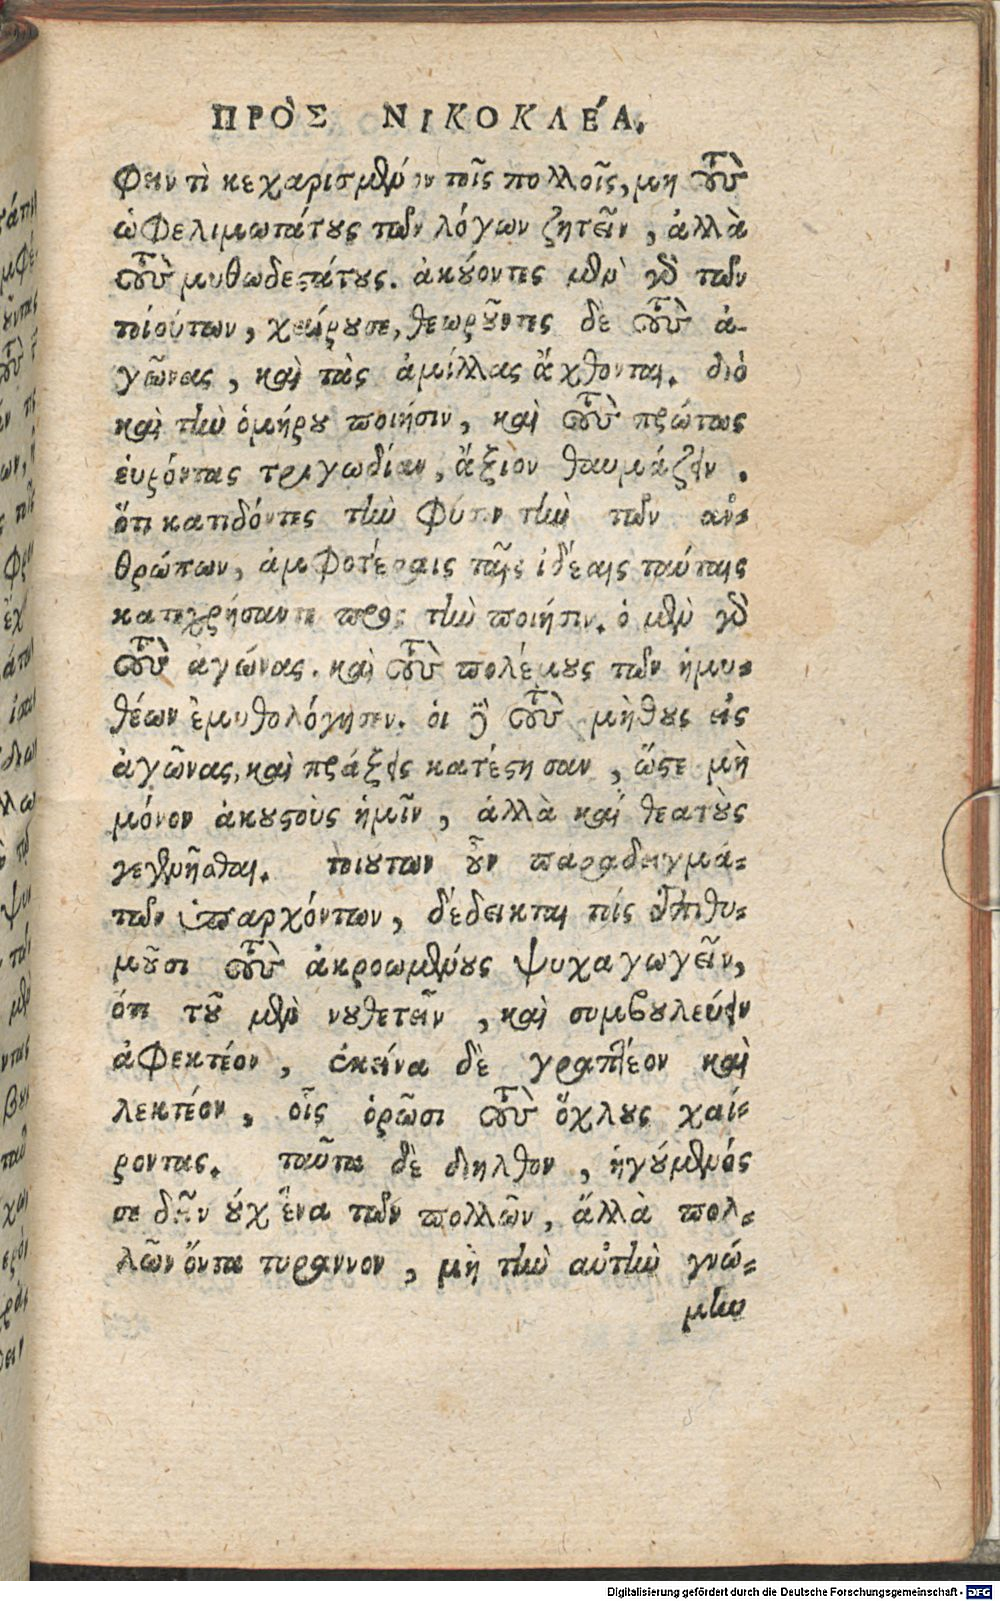 ΠΡῸΣ ΝΙΚΟΚΛΈΑ.
φειν τὶ κεχαρισμένον τοῖς πολλοῖς, μὴ τοὺς
ὠφελιμωτάτους τῶν λόγων ζητεῖν, ἀλλὰ
τοὺς μυθωδεστάτους. ἀκούοντες μὲν γὰρ τῶν
τοιούτων, χαίρουσι, θεωροῦντες δὲ τοὺς ἀ-
γῶνας, καὶ τὰς ἁμίλλας ἄχθονται. διὸ
καὶ τὴν ὁμήρου ποίησιν, καὶ τοὺς πρώτους
εὑρόντας τραγωδίαν, ἄξιον θαυμάζειν.
ὅτι κατιδόντες τὴν φύσιν τὴν τῶν ἀν-
θρώπων, ἀμφοτέραις ταῖς ἰδέαις ταύταις
κατεχρήσαντο πρὸς τὴν ποίησιν. ὁ μὲν γὰρ
τοὺς ἀγώνας. καὶ τοὺς πολέμους τῶν ἡμι-
θέων ἐμυθολόγησεν. οἱ δὲ τοὺς μύθους εἰς
ἀγῶνας, καὶ πράξεις κατέστησαν, ὥστε μὴ
μόνον ἀκουστοὺς ἡμῖν, ἀλλὰ καὶ θεατοὺς
γενέσθαι. τοιούτων οὖν παραδειγμά-
των ὑπαρχόντων, δέδεικται τοῖς ἐπιθυ-
μοῦσι τοὺς ἀκροωμένους ψυχαγωγεῖν,
ὅτι τοῦ μὲν νουθετεῖν, καὶ συμβουλεύειν
ἀφεκτέον, ἐκεῖνα δὲ γραπτέον καὶ
λεκτέον, οἷς ὁρῶσι τοὺς ὄχλους χαί-
ροντας. ταῦτα δὲ διῆλθον, ἡγούμενός
σε δεῖν οὐχ ἕνα τῶν πολλῶν, ἀλλὰ πολ-
λῶν ὄντα τυραννον, μὴ τὴν αὐτὴν γνώ-
μην
Digitalisierung gefördert durch die Deutsche Forschungsgemeinschaft - DFG